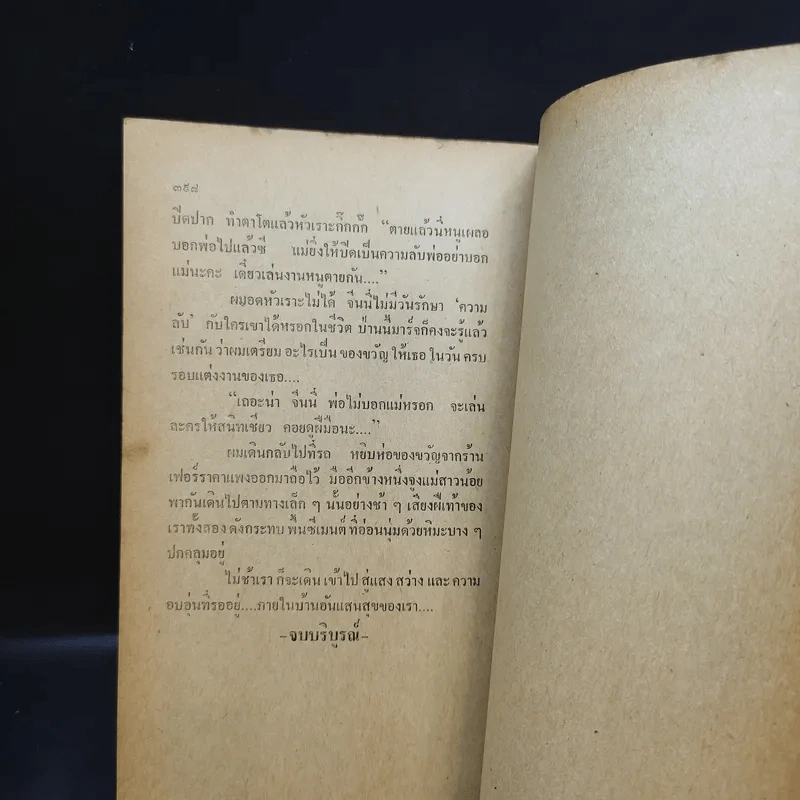 ๓๙๘
ปิดปาก ทำตาโตแล้วหัวเราะกิ๊กกั๊ก “ตายแล้วนี่หนูเผลอ
บอกพ่อไปแล้วซี แม่ยิ่งให้ปิดเป็นความลับพ่ออย่าบอก
แม่นะคะ เดี๋ยวเล่นงานหนูตายกัน....”
ผมอดหัวเราะไม่ได้ จีนนี่ไม่มีวันรักษา ‘ความ
ลับ’ กับใครเขาได้หรอกในชีวิต ป่านนี้มาร์จก็คงจะรู้แล้ว
เช่นกัน ว่าผมเตรียม อะไรเป็น ของขวัญ ให้เธอ ในวัน ครบ
รอบแต่งงานของเธอ....
“เถอะน่า จีนนี่ พ่อไม่บอกแม่หรอก จะเล่น
ละครให้สนิทเชียว คอยดูฝีมือนะ....”
ผมเดินกลับไปที่รถ หยิบห่อของขวัญจากร้าน
เฟอร์ราคาแพงออกมาถือไว้ มืออีกข้างหนึ่งจูงแม่สาวน้อย
พากันเดินไปตามทางเล็ก ๆ นั้นอย่างช้า ๆ เสียงฝีเท้าของ
เราทั้งสอง ดังกระทบ พื้นซีเมนต์ ที่อ่อนนุ่มด้วยหิมะบาง ๆ
ปกคลุมอยู่
ไม่ช้าเรา ก็จะเดิน เข้าไป สู่แสง สว่าง และ ความ
อบอุ่นที่รออยู่....ภายในบ้านอันแสนสุขของเรา....
-จบบริบูรณ์-